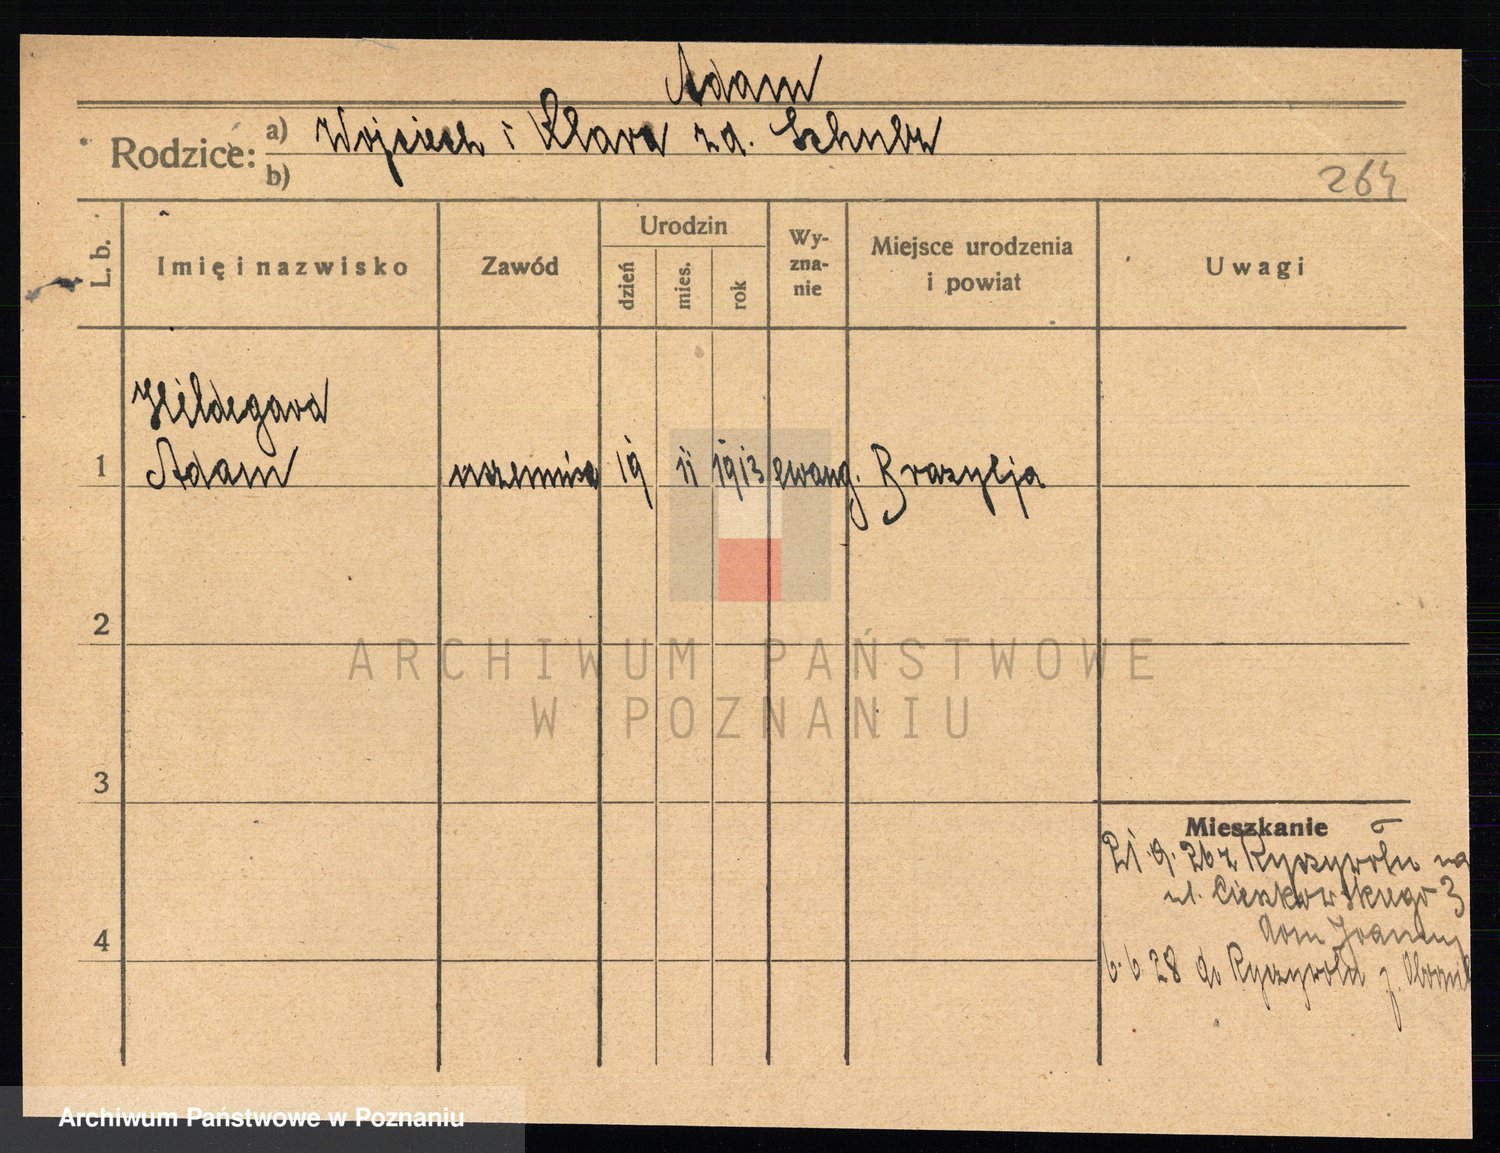 Adam
Rodzice: a) Wojciech i Klara z d. Schulz
b)
264
L. b.
Imię i nazwisko
Zawód
Urodzin
dzień
mies.
rok
Wy-
zna-
nie
Miejsce urodzenia
i powiat
Uwagi
Hildegard
1 Adam uczennica 19 11 1913 ewang. Brazylja
2
3
4
ARCHIWUM PAŃSTWOWE
W POZNANIU
Mieszkanie
21.9.26 z Ryczywołu na
ul. Cieszkowskiego 3
dom
6.6.28 do Ryczywołu p. Oborniki
Archiwum Państwowe w Poznaniu